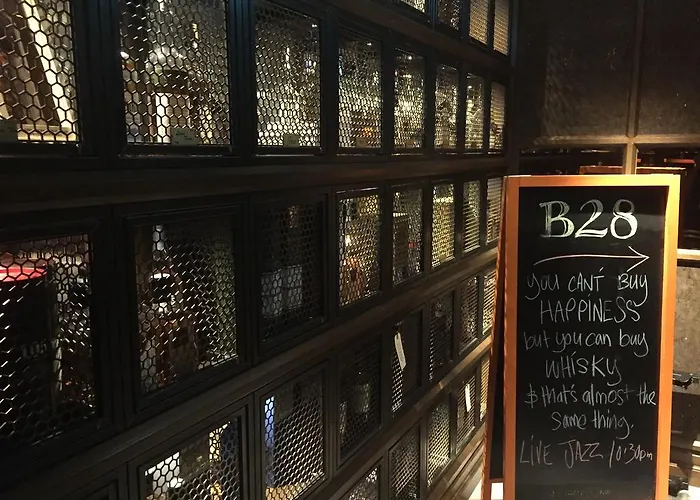 B28
you CAN'T BUY
HAPPINESS
but you can buy
WHISKY
& that's almost the
same thing.
LIVE JAZZ 10:30pm